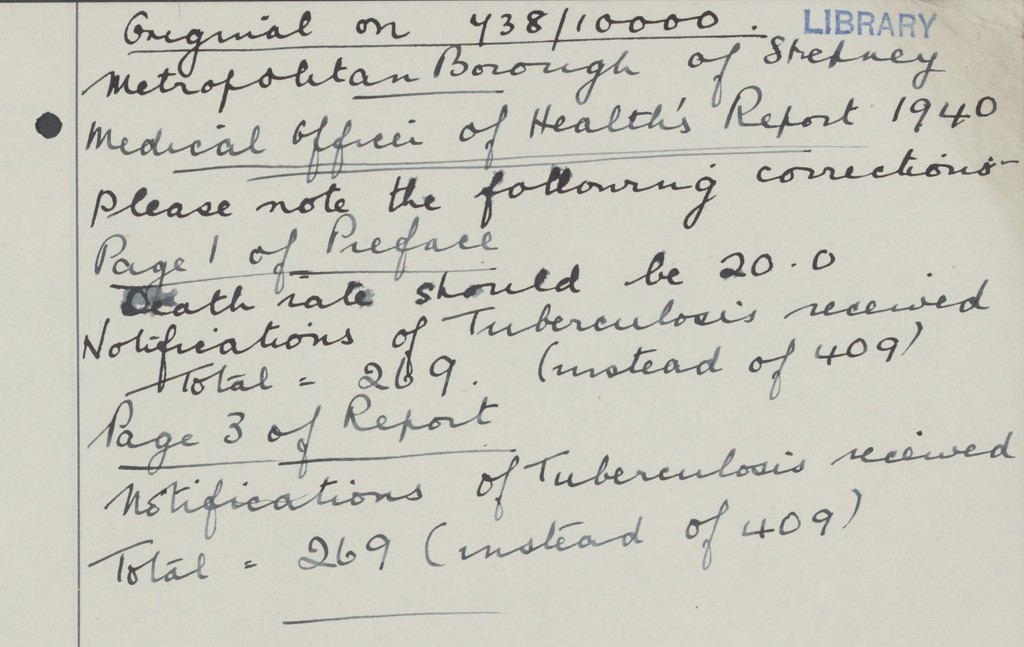 Original on 438/10000.
LIBRARY
Metropolitan Borough of Stepney
Medical Officer of Health's Report 1940
Please note the following corrections-
Page 1 of Preface
Death rate should be 20.0
Notifications of Tuberculosis received
Total = 269. (instead of 409)
Page 3 of Report
Notifications of Tuberculosis received
Total = 269 (instead of 409)